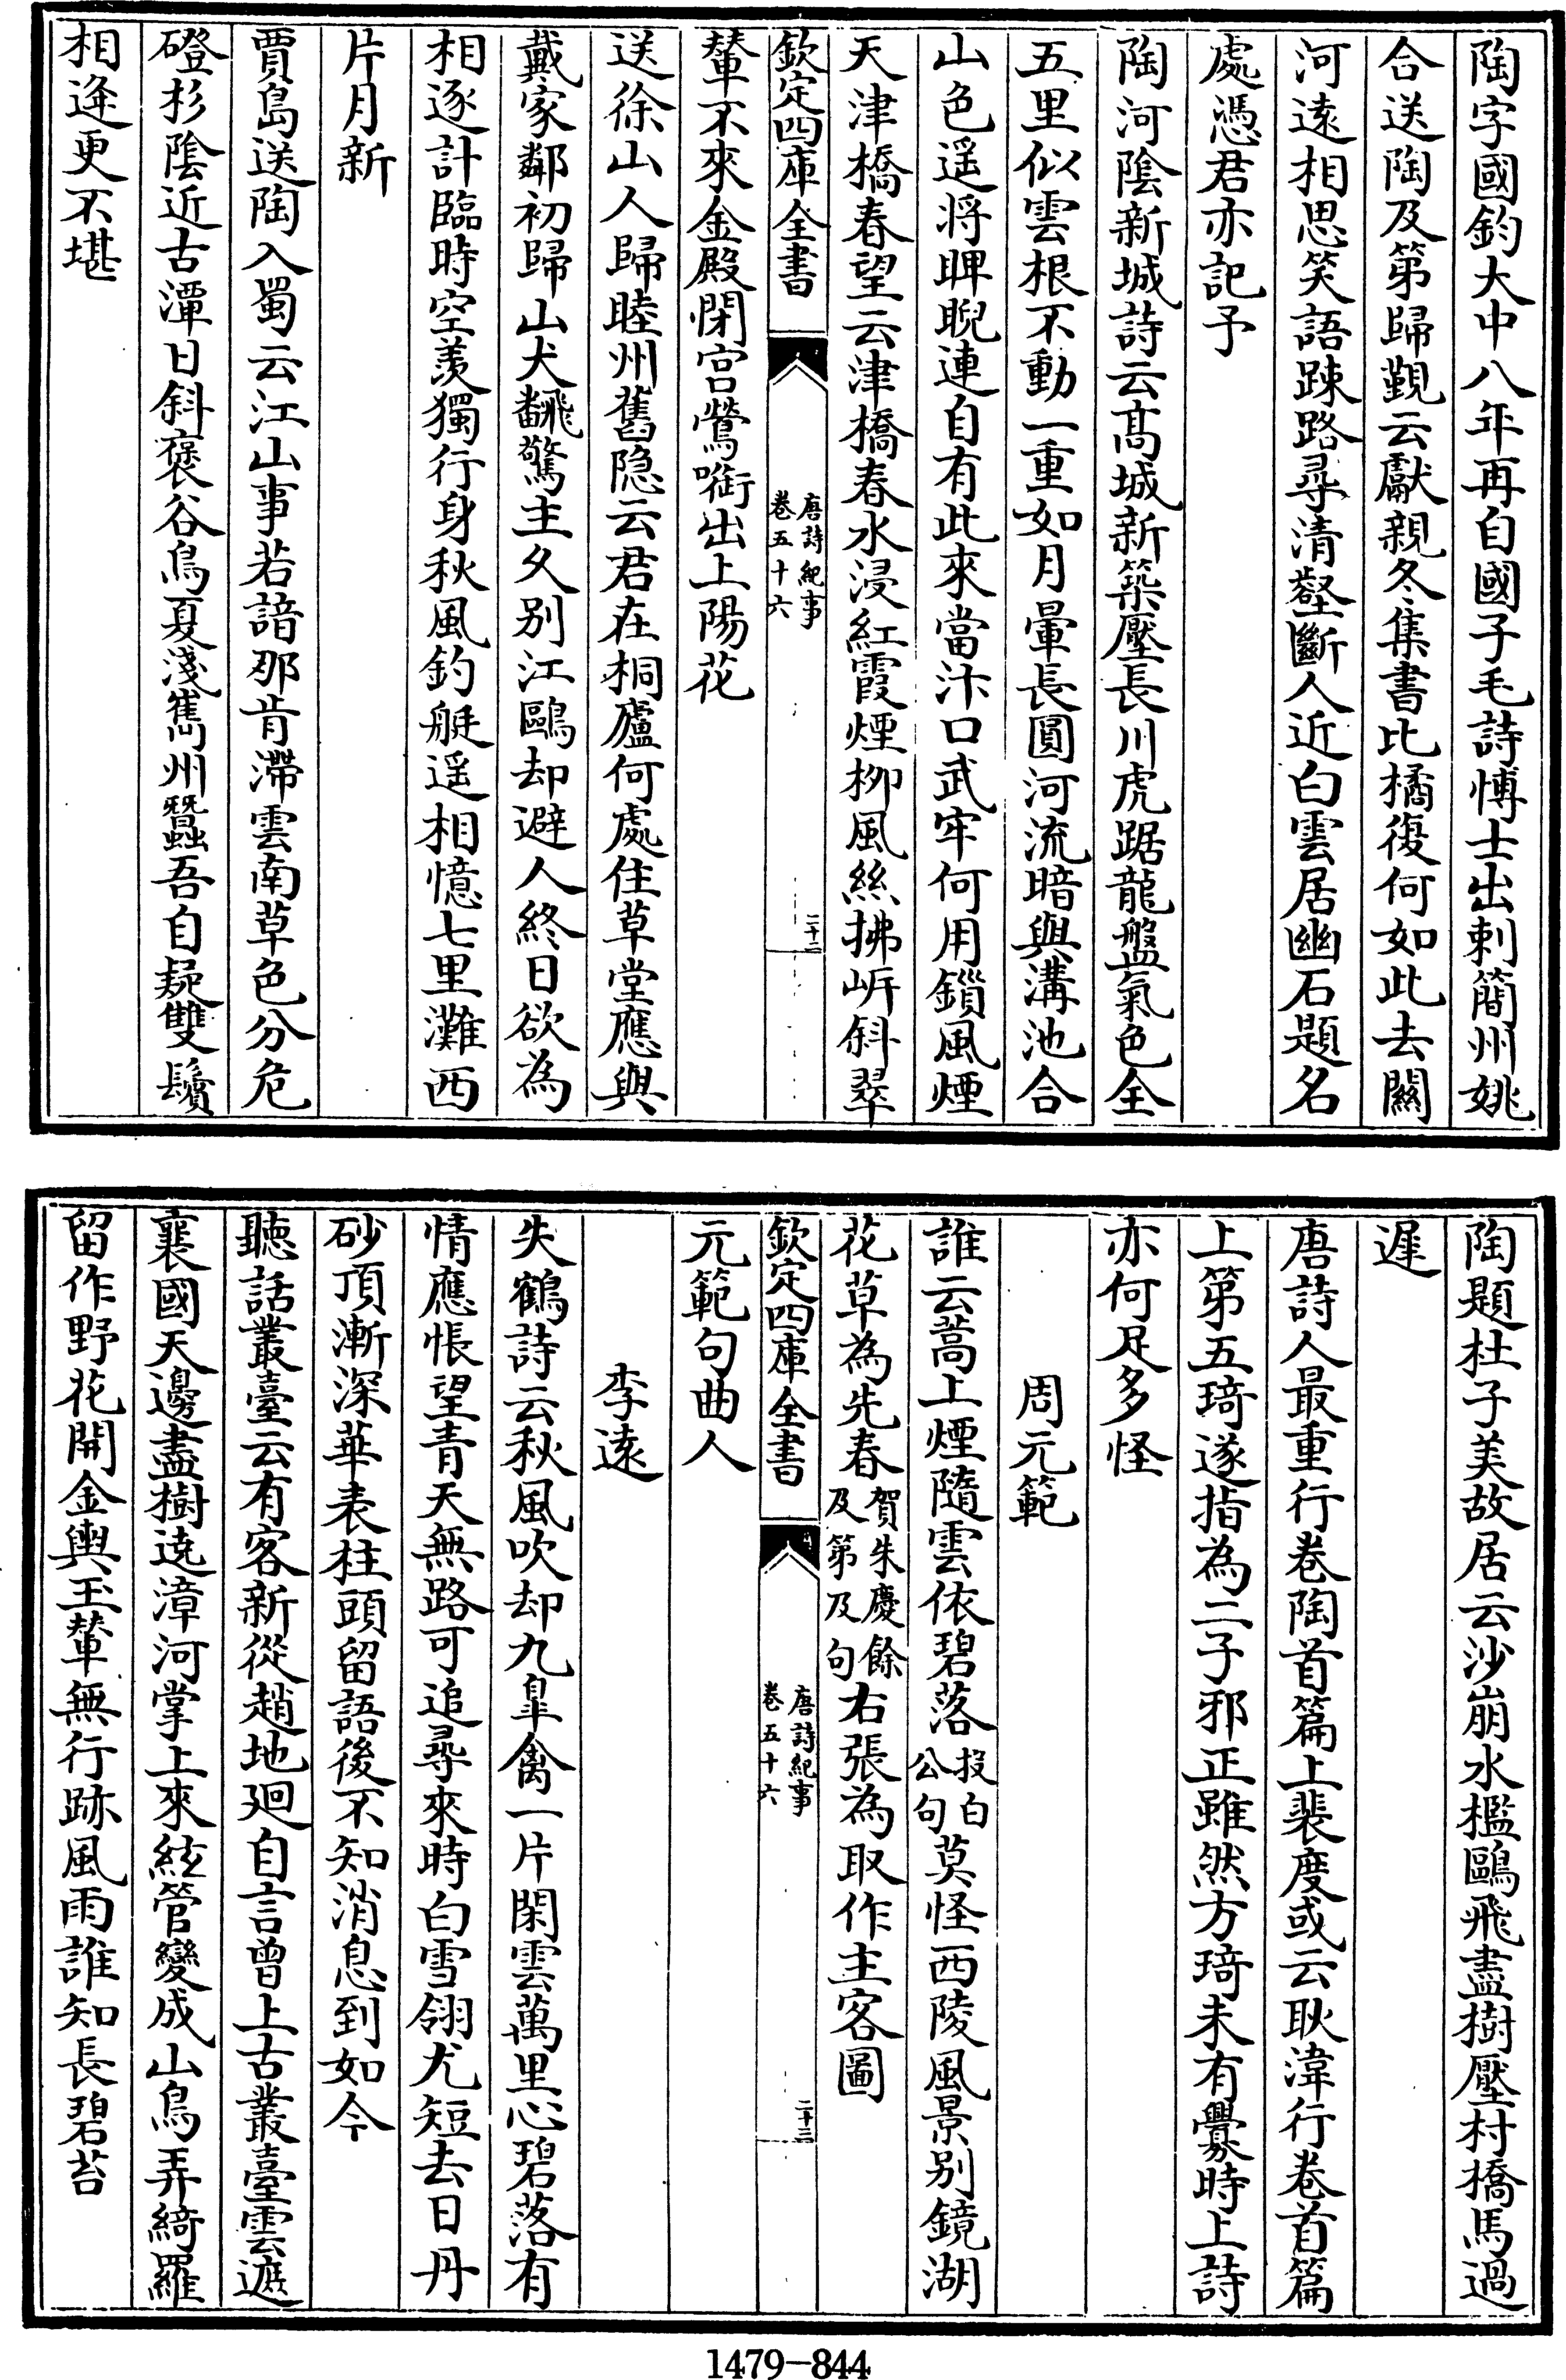 陶字國鈞大中八年再自國子毛詩博士出刺簡州姚
合送陶及第歸覲云獻親冬集書比橘復何如此去關
河遠相思笑語踈路尋清壑斷人近白雲居幽石題名
處憑君亦記予
陶河陰新城詩云髙城新築壓長川虎踞龍盤氣色全
五里似雲根不動一重如月暈長圓河流暗與溝池合
山色遥将睥睨連自有此來當汴口武牢何用鎻風煙
天津橋春望云津橋春水浸紅霞煙栁風絲拂岍斜翠
欽定四庫全書
唐詩紀事
卷五十六
二十二
輦不來金殿閉宫鶯㗸出上陽花
送徐山人歸睦州舊隐云君在桐廬何處住草堂應與
戴家鄰初歸山犬飜驚主乆别江鷗却避人終日欲為
相逐計臨時空羨獨行身秋風釣艇遥相憶七里灘西
片月新
賈島送陶入蜀云江山事若諳那肯滯雲南草色分危
磴杉隂近古潭日斜襃谷鳥夏淺雟州蠶吾自疑雙鬢
相逢更不堪
陶題杜子美故居云沙崩水檻鷗飛盡樹壓村橋馬過
遲
唐詩人最重行卷陶首篇上裴度或云耿湋行卷首篇
上第五琦遂指為二子邪正雖然方琦未有釁時上詩
亦何足多怪
周元範
誰云蒿上煙隨雲依碧落投白公句莫怪西陵風景别鏡湖
花草為先春賀朱慶餘及第及句右張為取作主客圖
欽定四庫全書
唐詩紀事
卷五十六
二十三
元範句曲人
李逺
失鶴詩云秋風吹却九臯禽一片閑雲萬里心碧落有
情應悵望青天無路可追尋來時白雪翎尤短去日丹
砂頂漸深華表柱頭留語後不知消息到如今
聽話叢臺云有客新從趙地廻自言曾上古叢臺雲遮
襄國天邊盡樹遶漳河掌上來絃管變成山鳥弄綺羅
留作野花開金輿玉輦無行跡風雨誰知長碧苔
1479-844